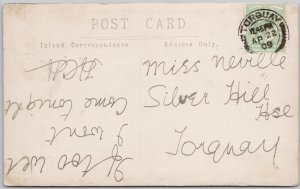 POST CARD.
Inland Correspondence
Address Only.
TORQUAY
12.45PM
AP 22
09
Miss Neville
Silver Hill
Hse
Torquay
If too wet
I wont
come tonight